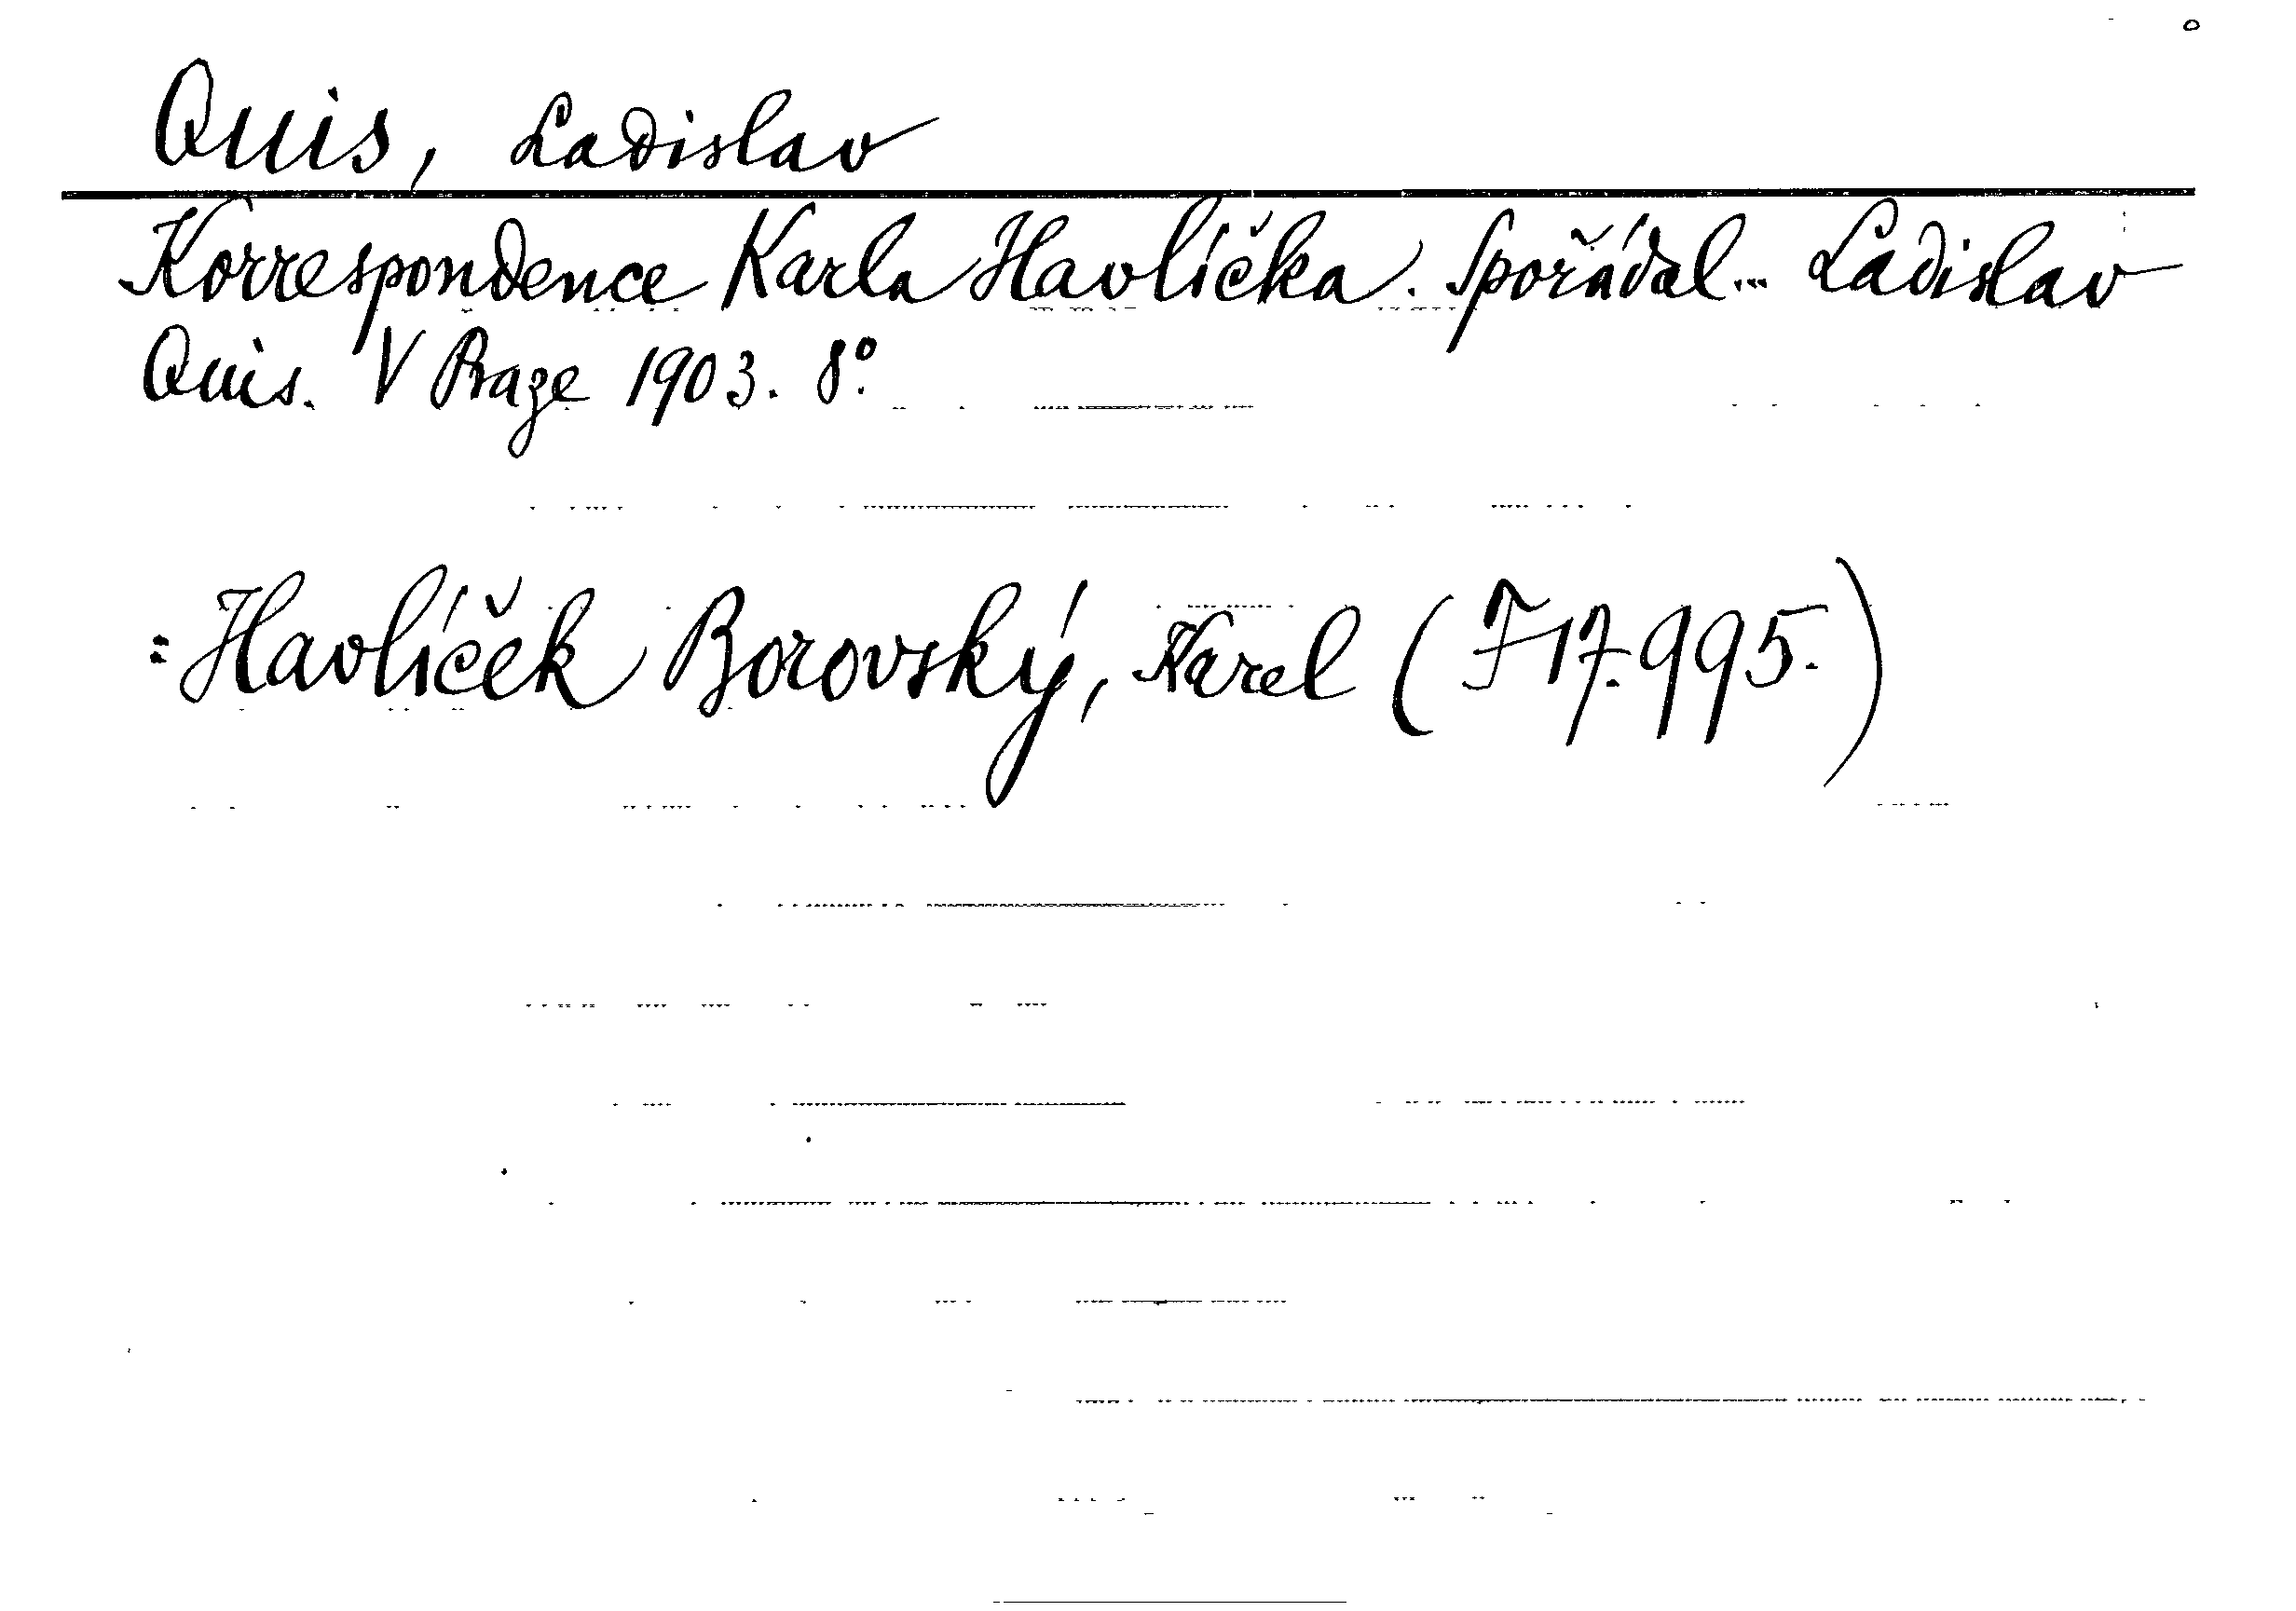 Quis, Ladislav
Korrespondence Karla Havlíčka. Spořádal... Ladislav
Quis. V Praze 1903. 8°.
: Havlíček Borovský, Karel (F 17.995.)